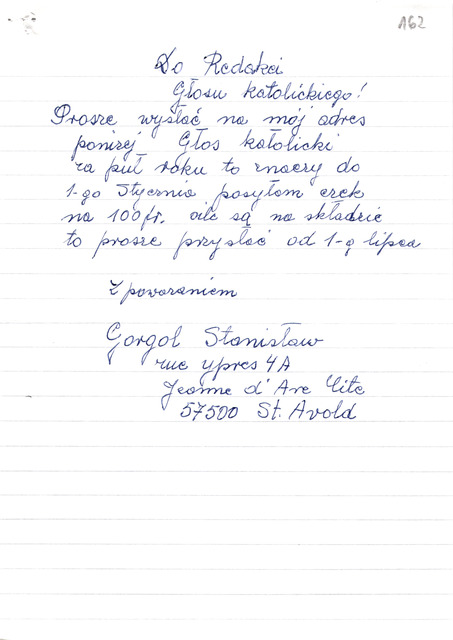 162
Do Redakci
Głosu katolickiego!
Prosze wysłać na mój adres
poniżej Głos katolicki
za puł roku to znaczy do
1-go Stycznia posyłom czek
na 100 fr. ale są na składzie
to prosze przysłać od 1-g lipca
Z powaraniem
Gorgol Stanisław
rue ypres 4A
Jeanne d'Arc Cite
57500 St. Avold